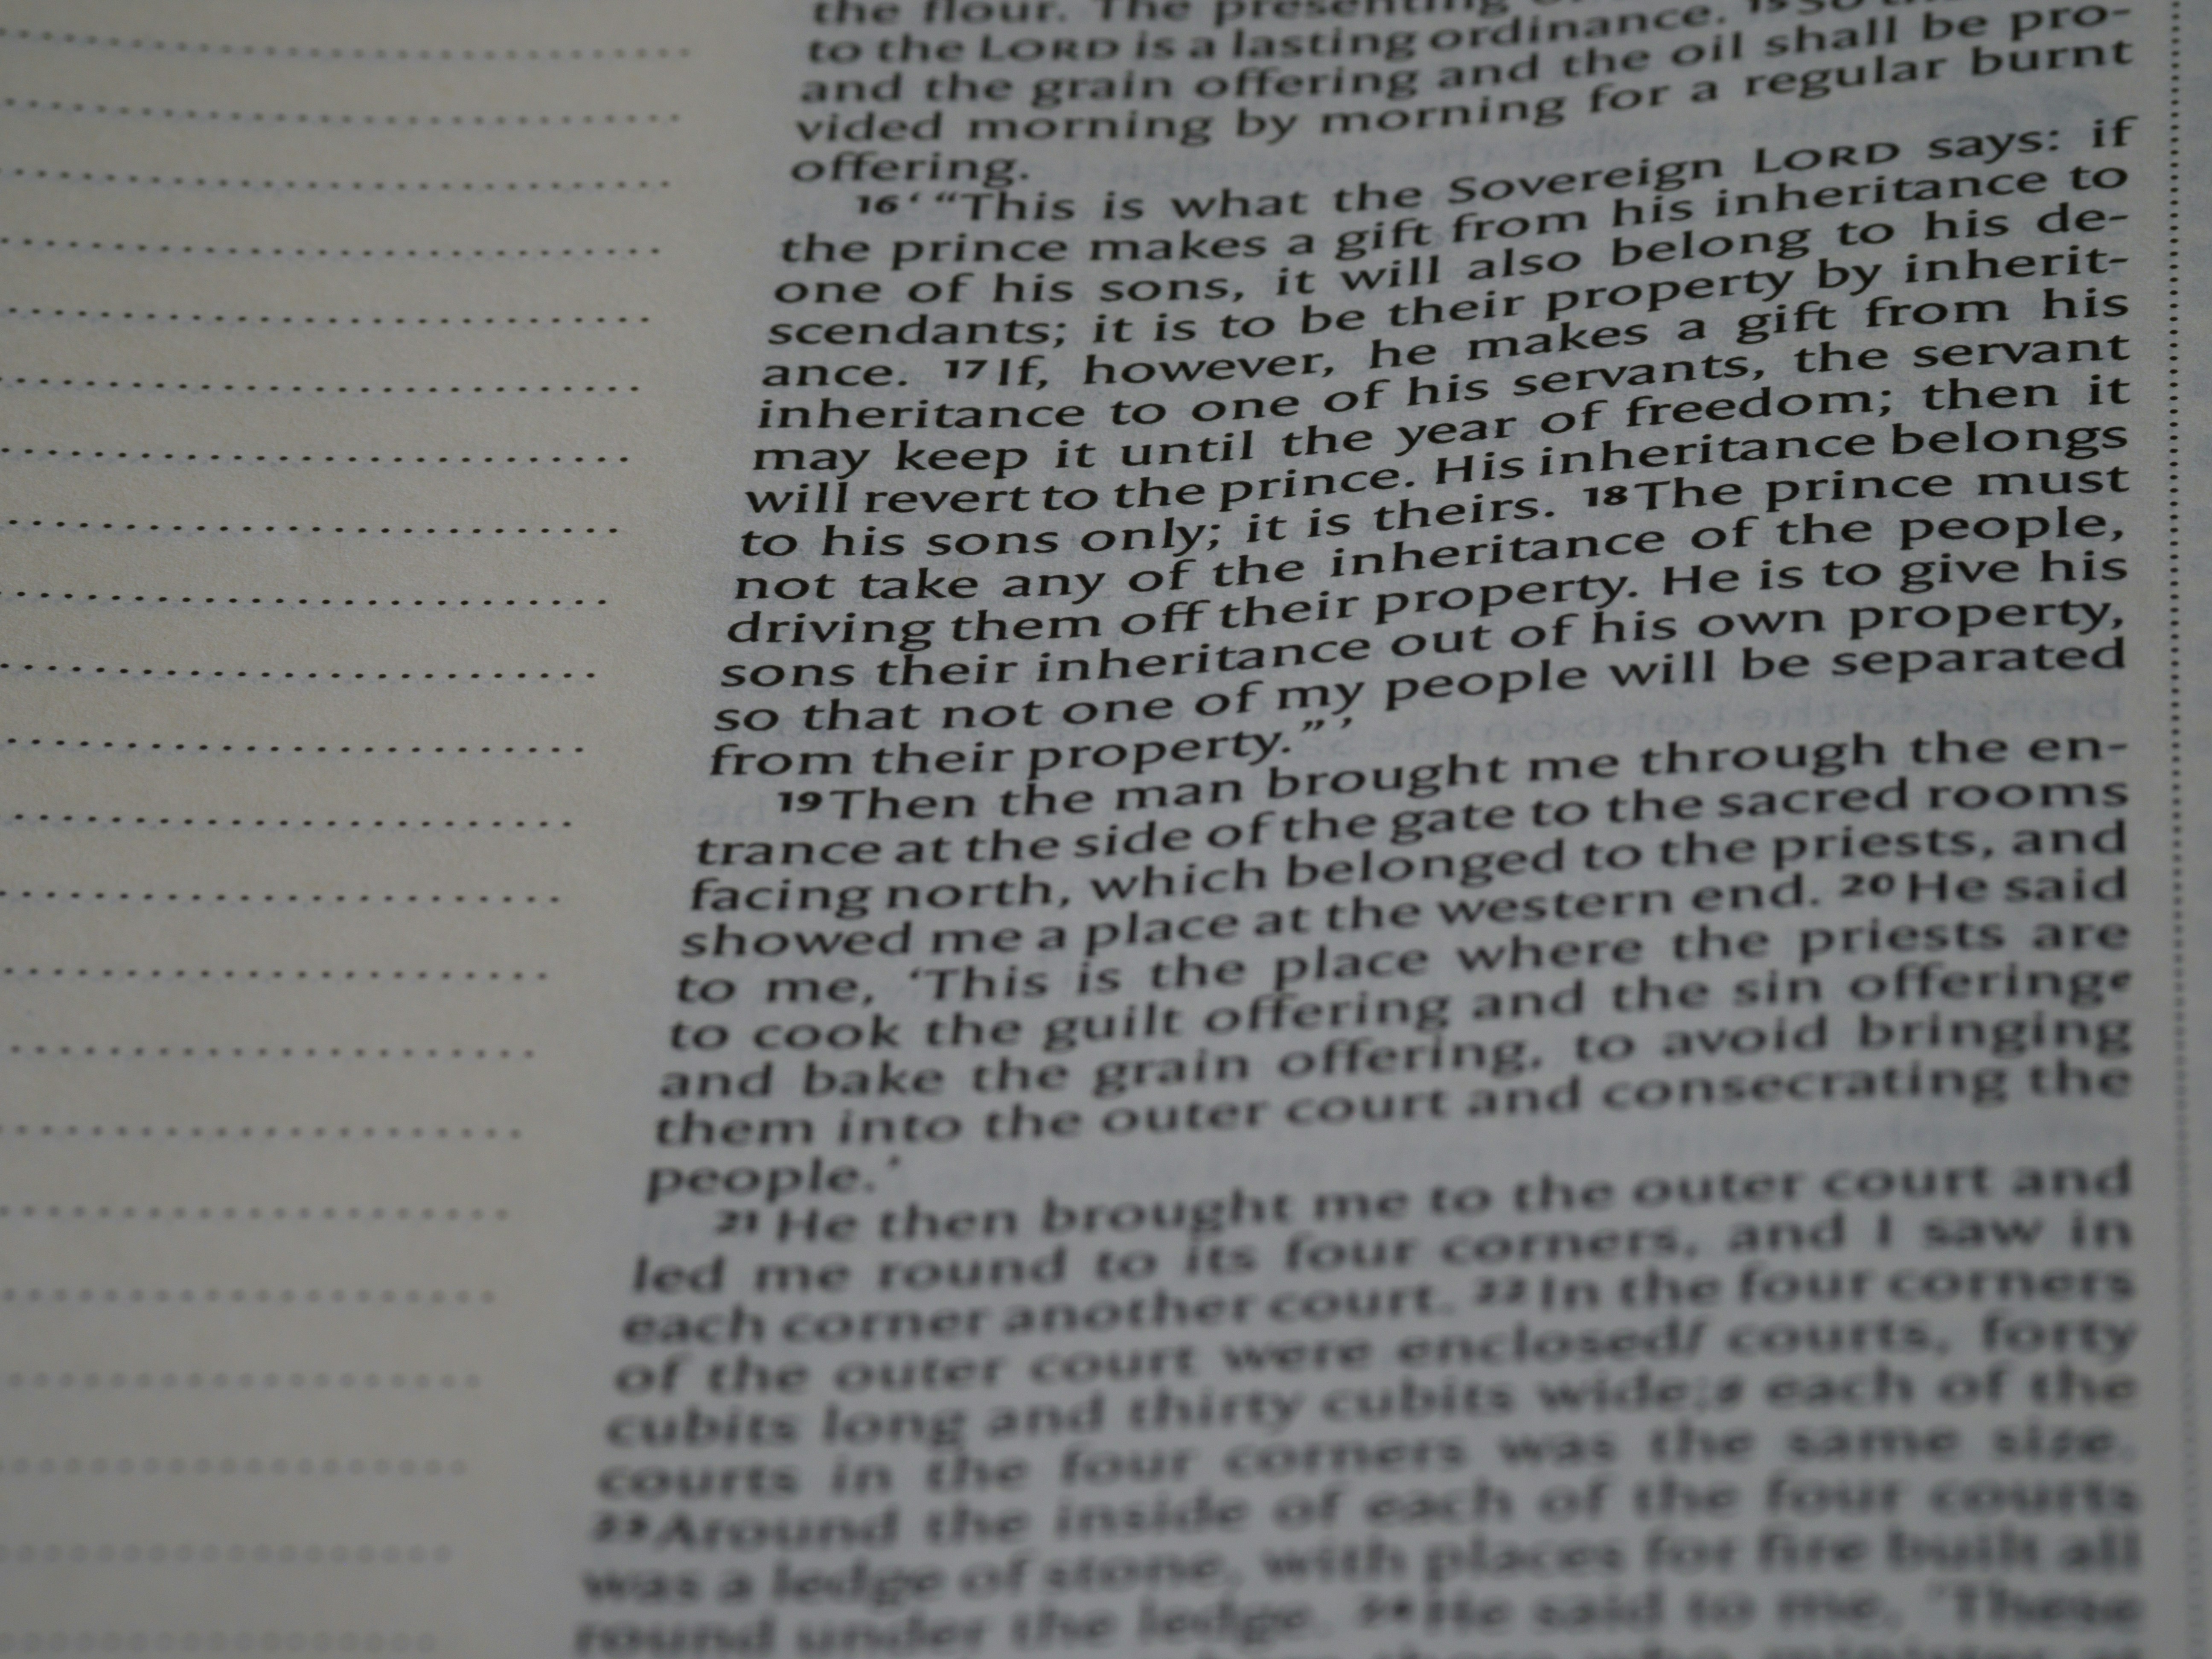 the flour. The presenting
to the LORD is a lasting ordinance. 15 So
and the grain offering and the oil shall be pro-
vided morning by morning for a regular burnt
offering.
16 ‘ “This is what the Sovereign LORD says: if
the prince makes a gift from his inheritance to
one of his sons, it will also belong to his de-
scendants; it is to be their property by inherit-
ance. 17 If, however, he makes a gift from his
inheritance to one of his servants, the servant
may keep it until the year of freedom; then it
will revert to the prince. His inheritance belongs
to his sons only; it is theirs. 18 The prince must
not take any of the inheritance of the people,
driving them off their property. He is to give his
sons their inheritance out of his own property,
so that not one of my people will be separated
from their property.” ’
19 Then the man brought me through the en-
trance at the side of the gate to the sacred rooms
facing north, which belonged to the priests, and
showed me a place at the western end. 20 He said
to me, ‘This is the place where the priests are
to cook the guilt offering and the sin offering e
and bake the grain offering, to avoid bringing
them into the outer court and consecrating the
people.’
21 He then brought me to the outer court and
led me round to its four corners, and I saw in
each corner another court. 22 In the four corners
of the outer court were enclosed f courts, forty
cubits long and thirty cubits wide; g each of the
courts in the four corners was the same size.
23 Around the inside of each of the four courts
was a ledge of stone, with places for fire built all
round under the ledge. 24 He said to me, ‘These